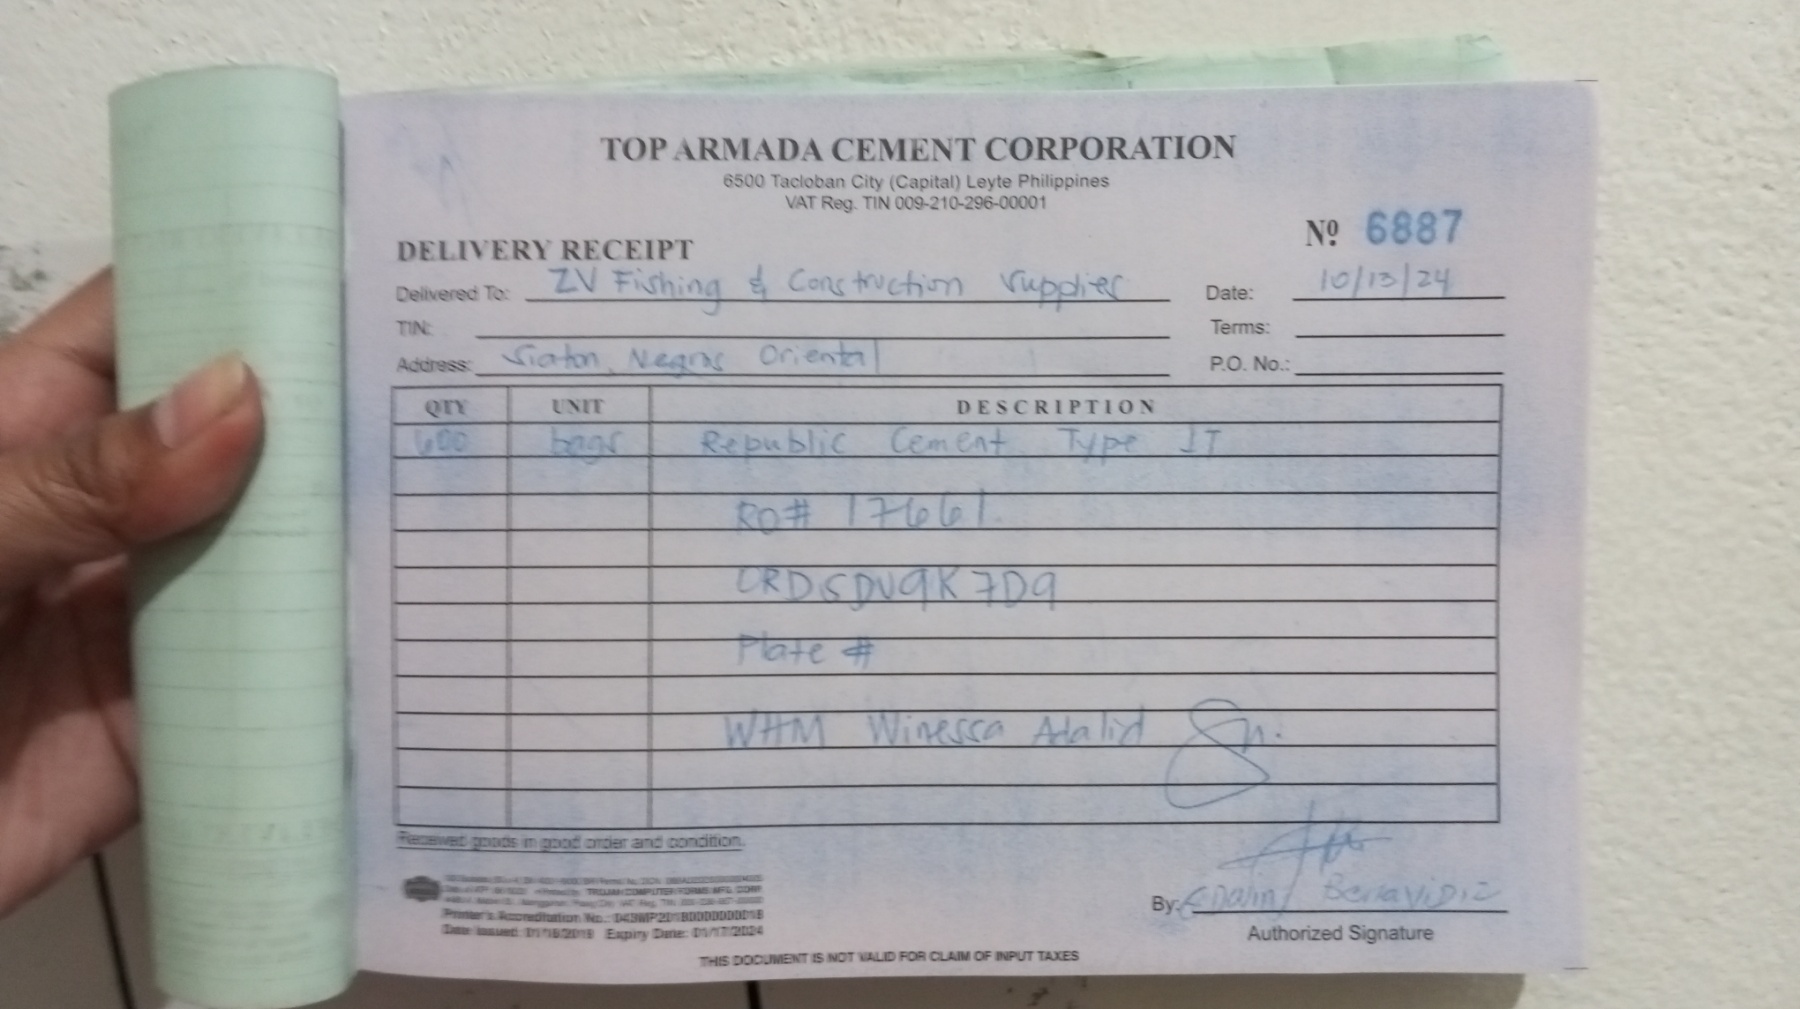 TOP ARMADA CEMENT CORPORATION
6500 Tacloban City (Capital) Leyte Philippines
VAT Reg. TIN 009-210-296-00001
Nº 6887
DELIVERY RECEIPT
Delivered To: ZV Fishing & Construction Supplies Date: 10/13/24
TIN: Terms:
Address: Siaton, Negros Oriental P.O. No.:
QTY UNIT DESCRIPTION
600 bags Republic Cement Type IT
RO# 17661
CRDSDV9K7D9
Plate #
WHM Winessa Adalid
Received goods in good order and condition.
TROJAN COMPUTER FORMS MFG. CORP.
Printer's Accreditation No.:
Date Issued: 01/18/2019 Expiry Date: 01/17/2024
By: Benavidiz
Authorized Signature
THIS DOCUMENT IS NOT VALID FOR CLAIM OF INPUT TAXES